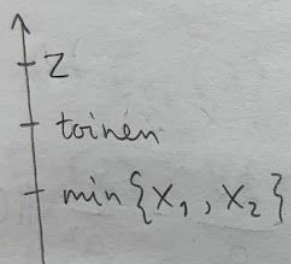 z
toinen
min{X₁, X₂}